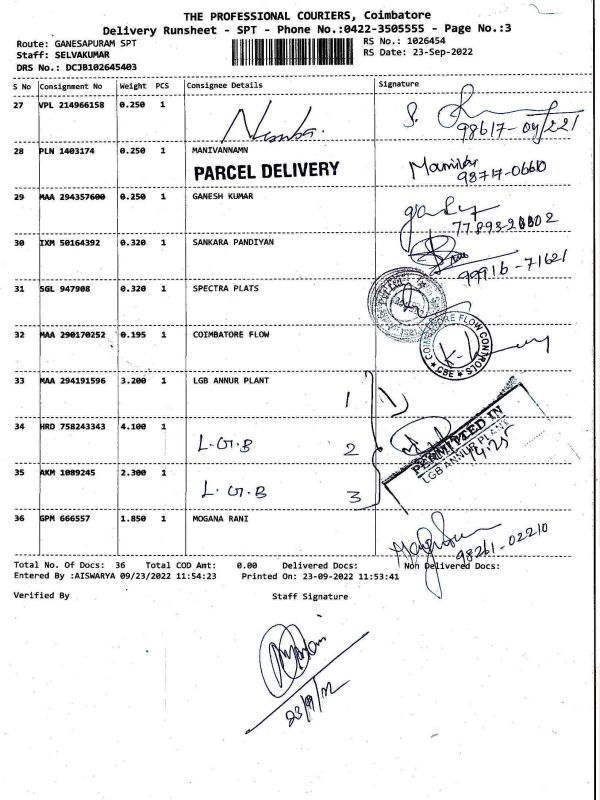 THE PROFESSIONAL COURIERS, Coimbatore
Delivery Runsheet - SPT - Phone No.:0422-3505555 - Page No.:3
Route: GANESAPURAM SPT
Staff: SELVAKUMAR
DRS No.: DCJB102645403
RS No.: 1026454
RS Date: 23-Sep-2022
S No Consignment No Weight PCS Consignee Details Signature
27 VPL 214966158 0.250 1
28 PLN 1403174 0.250 1 MANIVANNAMN
98717-06610
PARCEL DELIVERY
29 MAA 294357600 0.250 1 GANESH KUMAR
30 IXM 50164392 0.320 1 SANKARA PANDIYAN
99916-71621
31 SGL 947908 0.320 1 SPECTRA PLATS
32 MAA 290170252 0.195 1 COIMBATORE FLOW
COIMBATORE FLOW CONTROLS
CBE
33 MAA 294191596 3.200 1 LGB ANNUR PLANT
1
34 HRD 758243343 4.100 1
L.G.B 2
PERMITTED IN
LGB ANNUR PLANT
14:25
35 AKM 1089245 2.300 1
L.G.B 3
36 GPM 666557 1.850 1 MOGANA RANI
98261-02210
Total No. Of Docs: 36 Total COD Amt: 0.00 Delivered Docs: Non Delivered Docs:
Entered By :AISWARYA 09/23/2022 11:54:23 Printed On: 23-09-2022 11:53:41
Verified By Staff Signature
23/9/22